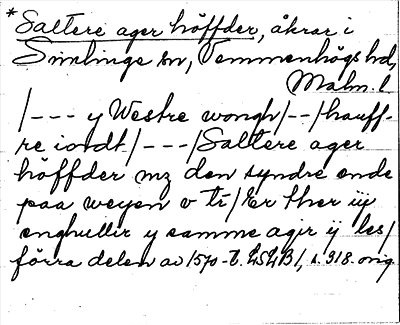 *Saltere ager höffder, åkrar i
Simlinge sn, Vemmenhögs hd,
Malm. l
/--- y Westre wongh/--/hauff-
re iordt/---/Saltere ager
höffder mz den syndre ende
paa weyen v tr/Er ther iiij
enghullir y samme agir ij les/
förra delen av 1570-t. LSLB/, s. 318. orig